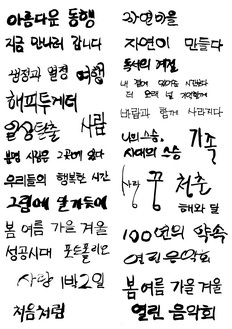 아름다운 동행
지금 만나러 갑니다
열정과 열정 여행
해피투게더
일상탈출 사람
분명 사람은 그곳에 있다
우리들의 행복한 시간
그림에 달가듯이
봄 여름 가을 겨울
성공시대 포트폴리오
사랑 1박2일
처음처럼
자연마을
자연이 만들다
독서의 계절
내 곁에
더 오래 널 기억할게
바람과 함께 사라지다
나의 스승, 가족
시대의 스승
사랑 꿈 청춘
해와 달
100년의 약속
열린음악회
봄 여름 가을 겨울
열린 음악회